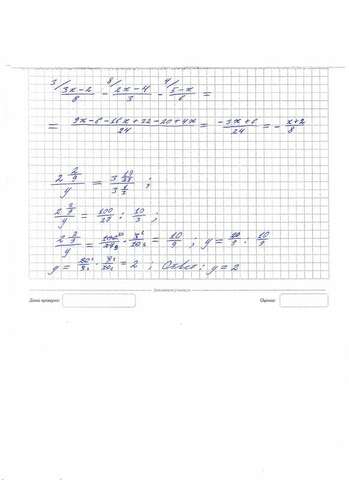 3/ 8/ 4/
(3x-2)/8 - (2x-4)/3 - (5-x)/6 =
= (9x-6-16x+32-20+4x)/24 = (-3x+6)/24 = -(x+2)/8
2 2/9 / y = 3 19/27 / 3 1/3 ;
2 2/9 / y = 100/27 : 10/3 ;
2 2/9 / y = 100/27 · 3/10 = 10/9 ; y = 20/9 : 10/9
y = 20/9 · 9/10 = 2 ; Ответ: y = 2
Дата проверки:
Оценка: